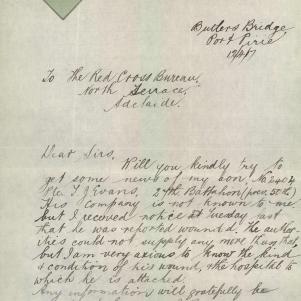 Butlers Bridge
Port Pirie
To The Red Cross Bureau,
North Terrace,
Adelaide.
Dear Sirs,
Will you kindly try to
get some news of my son, No 2404
Pte. T J Evans, 27th Battalion (prev. 50th)
His company is not known to me
but I received notice at Tuesday last
that he was reported wounded. The author-
ities could not supply any more thug that
but I am very axious to know the kind
& condition of his wound, the hospital to
which he is attached.
Any information will gratefully be